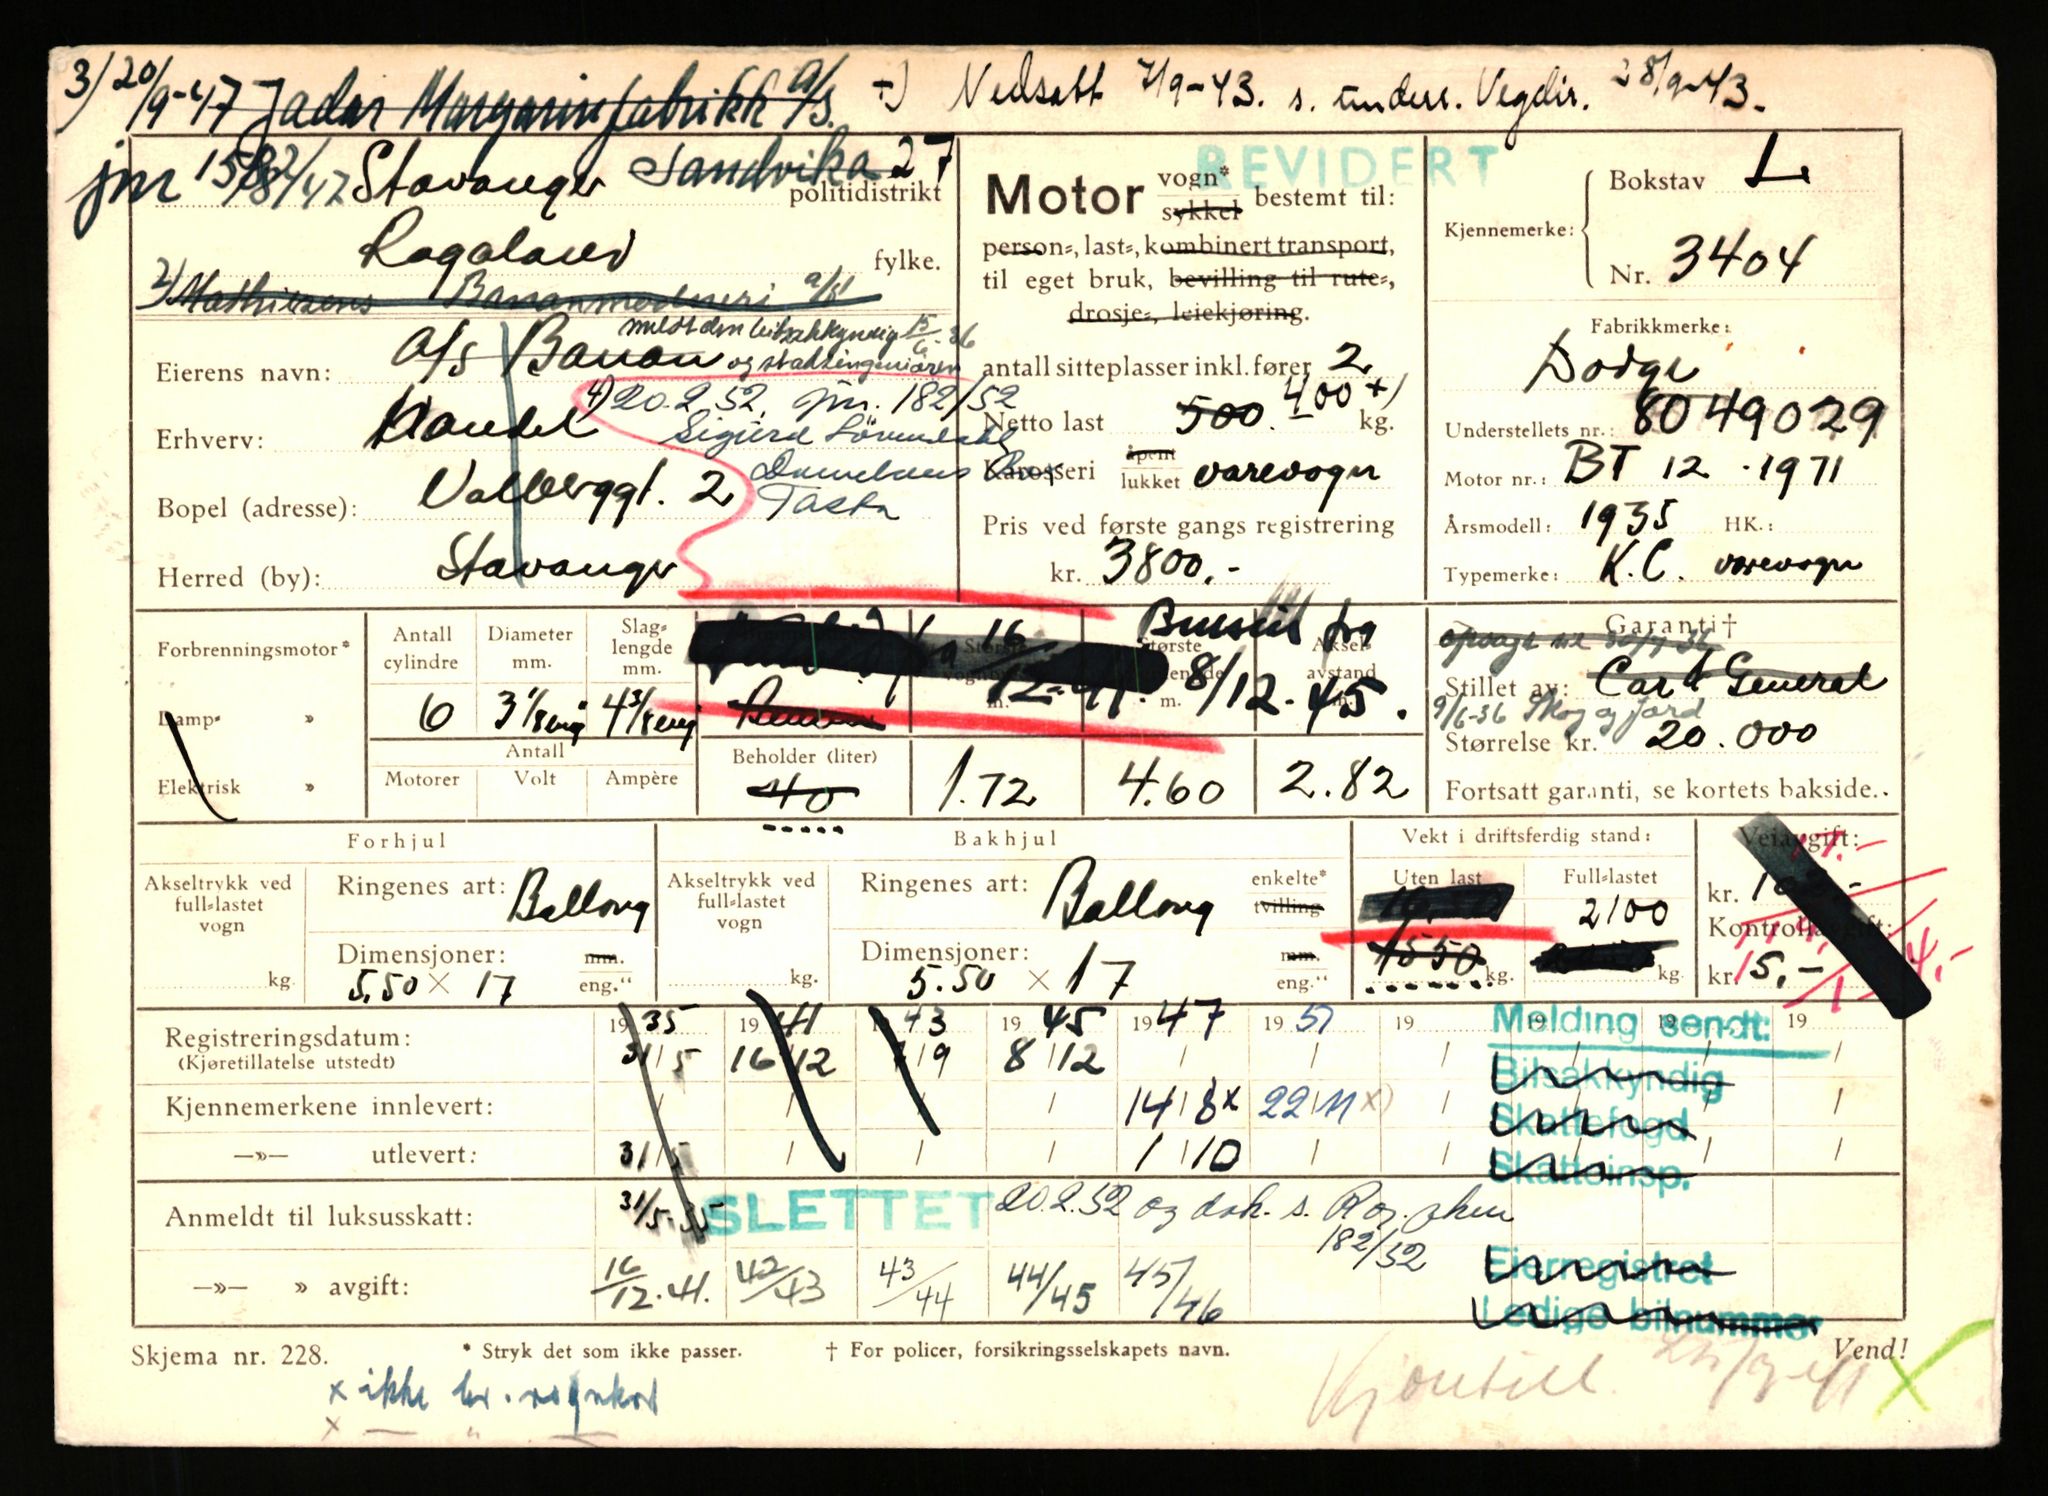 3) 20/9-47 Jadar Margarinfabrikk A/S. +) Nedsatt 7/9-43. s. underr. Vegdir. 28/9-43.
jnr 1582/47 Stavanger Sandvika 27
politidistrikt
Rogaland fylke.
2) Mathiesens Bananmodneri A/S
meldt den bilsakkyndig 15/6-36
Eierens navn: A/S Banan og statsingeniøren
4) 20.2.52. jnr. 182/52
Erhverv: Handel
Sigurd
Bopel (adresse): Valberggt. 2
Tasta
Herred (by): Stavanger
REVIDERT
Motor vogn* sykkel bestemt til:
person-, last-, kombinert transport,
til eget bruk, bevilling til rute-,
drosje-, leiekjøring.
antall sitteplasser inkl. fører 2
Netto last 500. 400 +) kg.
Karosseri åpent lukket varevogn
Pris ved første gangs registrering
kr. 3800,-
Kjennemerke: Bokstav L
Nr. 3404
Fabrikkmerke:
Dodge
Understellets nr.: 8049029
Motor nr.: BT 12 - 1971
Årsmodell: 1935 HK.:
Typemerke: K.C. varevogn
Forbrenningsmotor*
Damp- »
Elektrisk »
Antall cylindre 6
Diameter mm. 3 1/8 eng
Slaglengde mm. 4 3/8 eng
Antall
Motorer Volt Ampère
16/12-41. Bensin fra 8/12-45.
Største
Bensin
Beholder (liter) 40
1.72
4.60
Akselavstand m. 2.82
Garanti†
opsagt til 30/7-36
Stillet av: Car & General
9/6-36 Skog og Jord
Størrelse kr. 20.000
Fortsatt garanti, se kortets bakside.
Forhjul
Akseltrykk ved full-lastet vogn kg.
Ringenes art: Ballong
Dimensjoner: mm. eng."
5.50 × 17
Bakhjul
Akseltrykk ved full-lastet vogn kg.
Ringenes art: Ballong enkelte* tvilling
Dimensjoner: mm. eng."
5.50 × 17
Vekt i driftsferdig stand:
Uten last Full-lastet
2100
1550 kg. kg.
Veiavgift:
kr.
Kontrollavgift:
kr. 15,-
Registreringsdatum: 1935 1941 1943 1945 1947 1951 19 19 19 19
(Kjøretillatelse utstedt) 31/5 16/12 7/9 8/12
Kjennemerkene innlevert: 14/8 x 22/11 x)
—»— utlevert: 31/5 1/10
Melding sendt:
Bilsakkyndig
Skattefogd
Skatteinsp.
Eierregistret
Ledige bilnummer
Anmeldt til luksusskatt: 31/5.35 SLETTET 20.2.52 og dok. s. Rog.
182/52
—»— » avgift: 16/12.41. 42/43 43/44 44/45 45/46
Skjema nr. 228. * Stryk det som ikke passer. † For policer, forsikringsselskapets navn. Vend!
x ikke lev. vognkort
x — " —
Kjøretill.